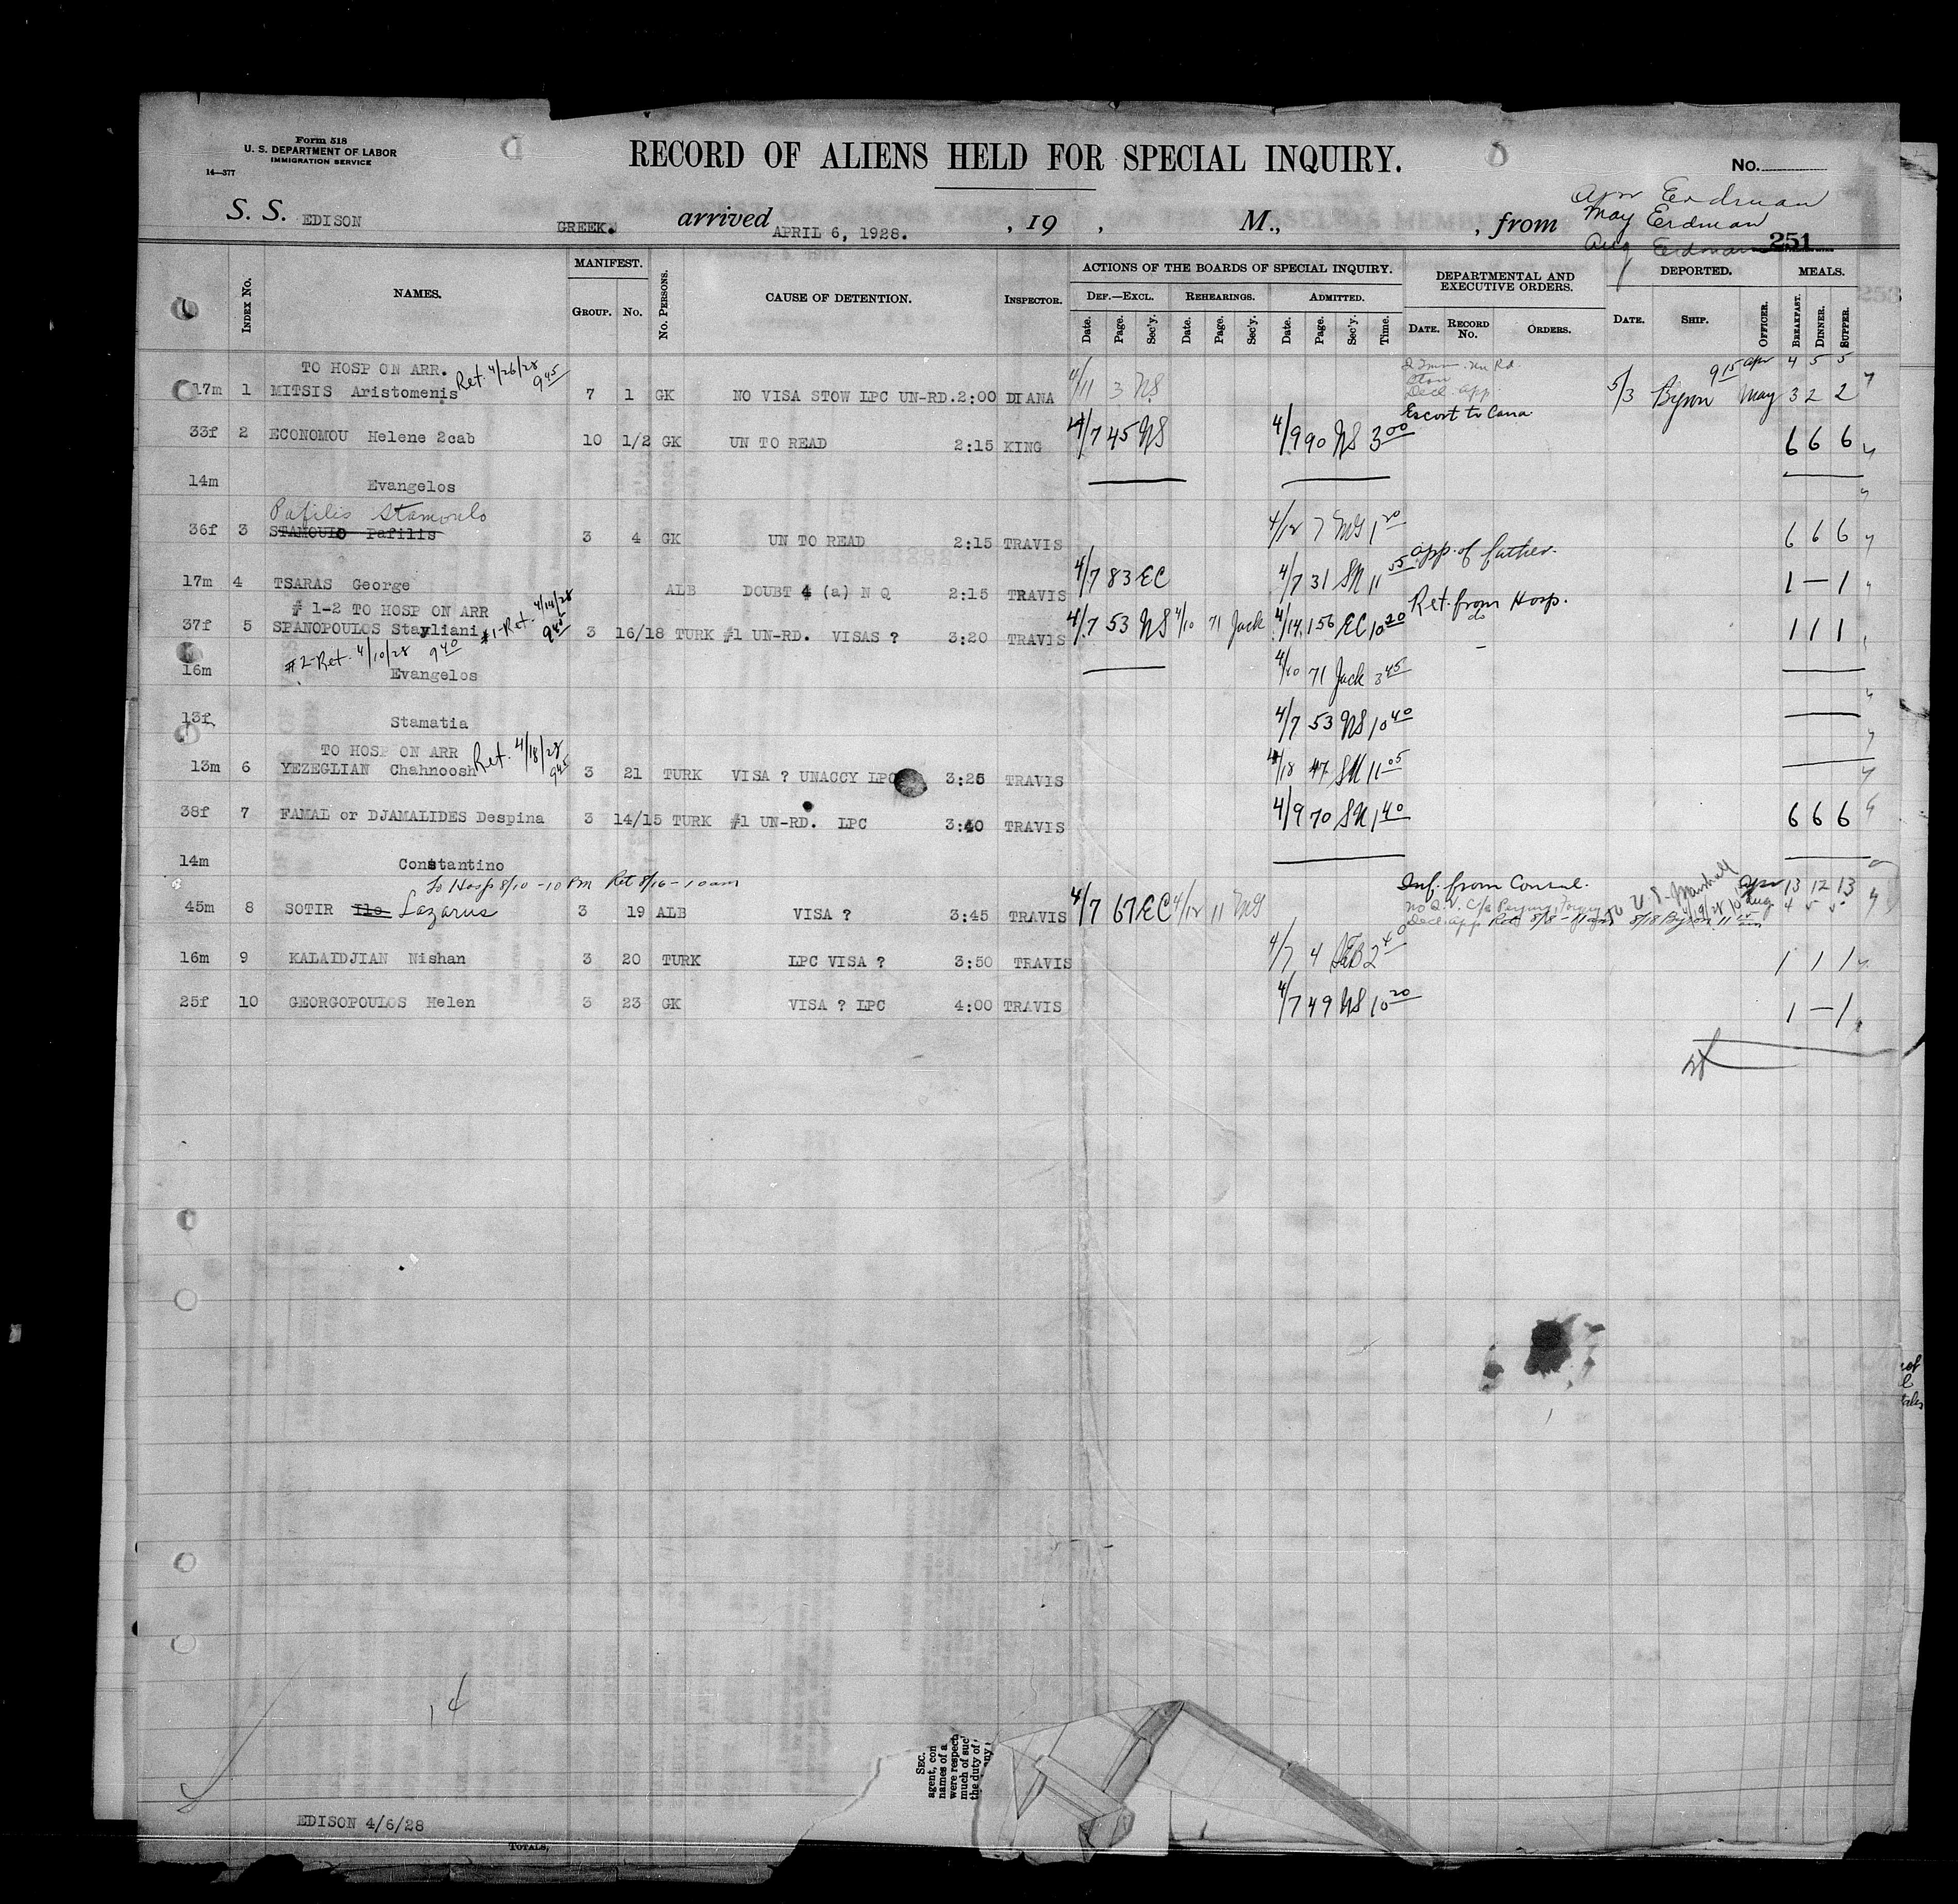 Form 518
U. S. DEPARTMENT OF LABOR
IMMIGRATION SERVICE
14—377
RECORD OF ALIENS HELD FOR SPECIAL INQUIRY.
No.
Apr Erdman
May Erdman
Aug Erdman
S. S. EDISON GREEK. arrived APRIL 6, 1928. , 19 , M., , from 251
INDEX No. NAMES. MANIFEST. GROUP. No. No. PERSONS. CAUSE OF DETENTION. INSPECTOR. ACTIONS OF THE BOARDS OF SPECIAL INQUIRY. DEPARTMENTAL AND EXECUTIVE ORDERS. DEPORTED. MEALS.
DEF.—EXCL. REHEARINGS. ADMITTED.
Date. Page. Sec'y. Date. Page. Sec'y. Date. Page. Sec'y. Time. DATE. RECORD No. ORDERS. DATE. SHIP. OFFICER. BREAKFAST. DINNER. SUPPER.
TO HOSP ON ARR. Ret. 4/26/28 9 45 9 15 Apr 4 5 5
17m 1 MITSIS Aristomenis 7 1 GK NO VISA STOW LPC UN-RD. 2:00 DIANA 4/11 3 NS Decl. app. 5/3 Byron May 3 2 2
Escort to
33f 2 ECONOMOU Helene 2cab 10 1/2 GK UN TO READ 2:15 KING 4/7 45 NS 4/9 90 NS 3 00 6 6 6
14m Evangelos
Pafilis Stamoulo
36f 3 STAMOULO Pafilis 3 4 GK UN TO READ 2:15 TRAVIS 4/12 7 1 20 6 6 6
app. of father.
17m 4 TSARAS George ALB DOUBT 4 (a) N Q 2:15 TRAVIS 4/7 83 EC 4/7 31 SN 11 55 1 — 1
# 1-2 TO HOSP ON ARR #1-Ret. 4/14/28 9 45 Ret. from Hosp.
37f 5 SPANOPOULOS Stayliani 3 16/18 TURK #1 UN-RD. VISAS ? 3:20 TRAVIS 4/7 53 NS 4/10 71 Jack 4/14 156 EC 10 20 do 1 1 1
#2-Ret. 4/10/28 9 40
16m Evangelos 4/10 71 Jack 3 45
13f Stamatia 4/7 53 NS 10 40
TO HOSP ON ARR Ret. 4/18/28 9 45
13m 6 YEZEGLIAN Chahnoosh 3 21 TURK VISA ? UNACCY LPC 3:25 TRAVIS 4/18 47 SN 11 05
38f 7 FAMAL or DJAMALIDES Despina 3 14/15 TURK #1 UN-RD. LPC 3:40 TRAVIS 4/9 70 SN 1 40 6 6 6
14m Constantino
To Hosp 8/10 - 10 PM Ret 8/16 - 10 am Inf. from Consul. To U S. Marshall Apr 13 12 13
45m 8 SOTIR Ilo Lazarus 3 19 ALB VISA ? 3:45 TRAVIS 4/7 67 EC 4/12 11 Aug 4 5 5
Decl. app. Ret 8/8 8/18 Byron 11
16m 9 KALAIDJIAN Nishan 3 20 TURK LPC VISA ? 3:50 TRAVIS 4/7 4 2 40 1 1 1
25f 10 GEORGOPOULOS Helen 3 23 GK VISA ? LPC 4:00 TRAVIS 4/7 49 NS 10 20 1 — 1
14
SEC.
agent, con
names of a
were respect
much of suc
the duty of
any
EDISON 4/6/28
TOTALS,